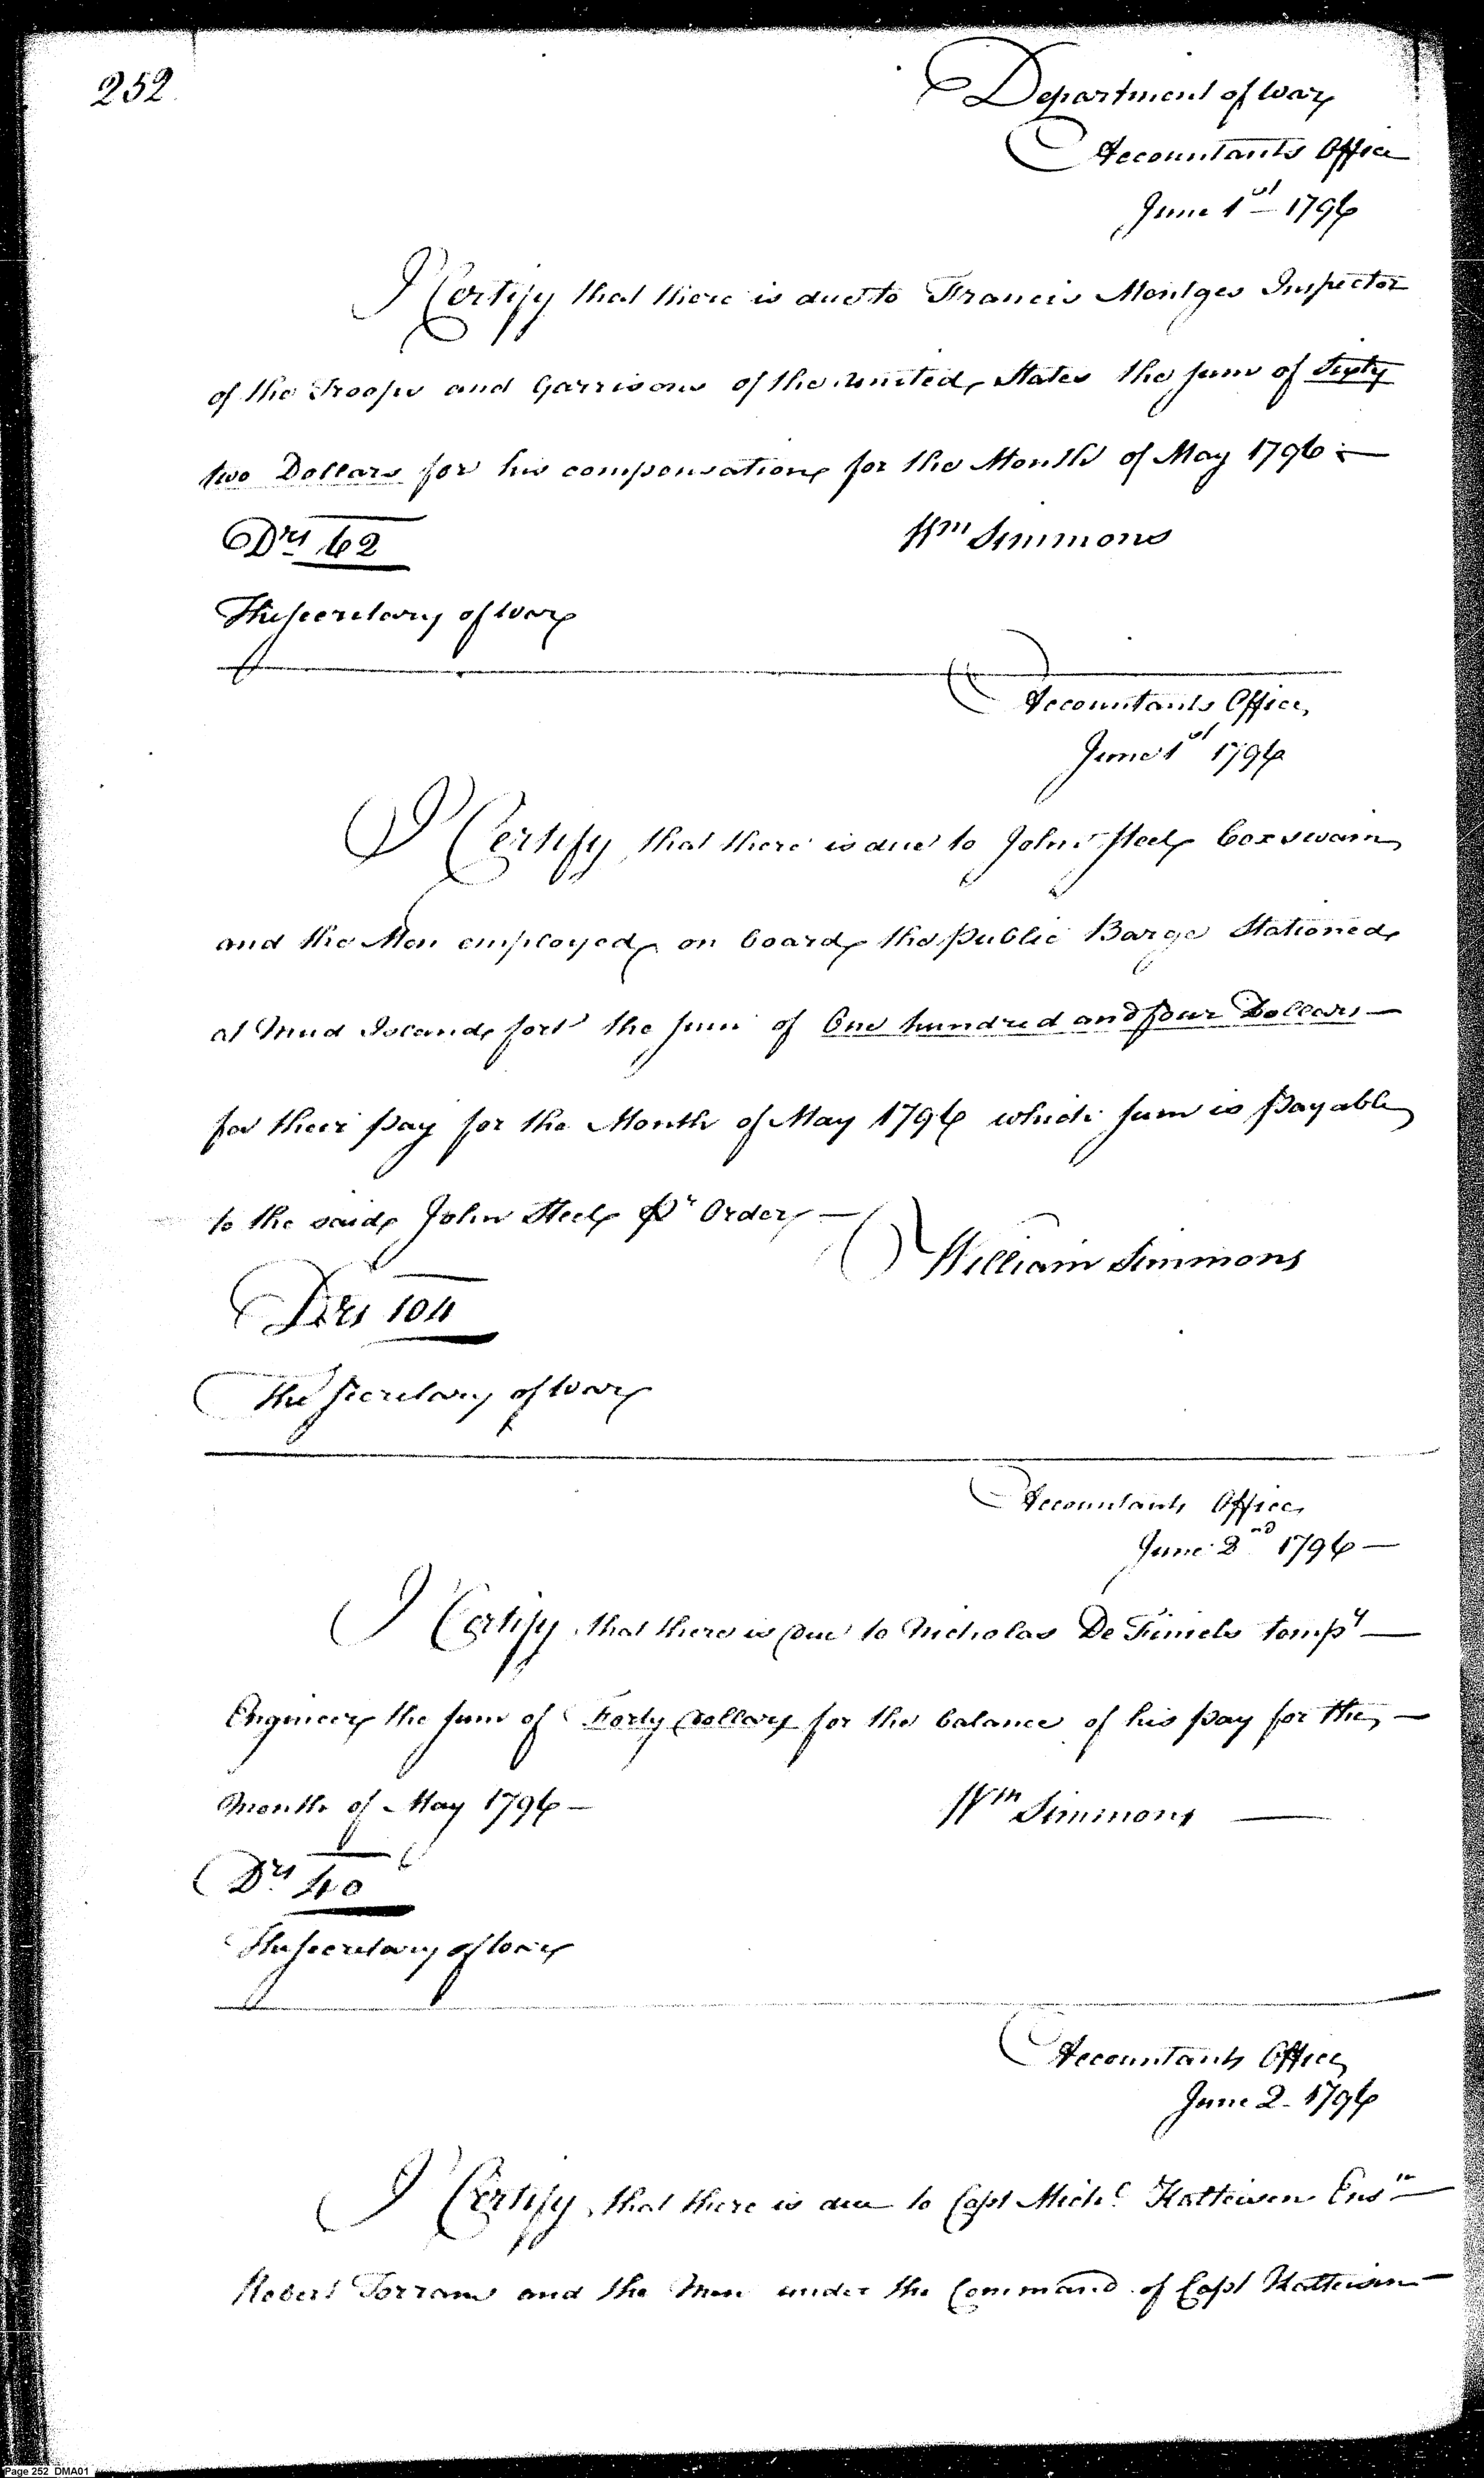 252
Department of War
Accountants Office
June 1st 1796
I Certify that there is due to Francis Mentges Inspector
of the Troops and Garrisons of the United States the sum of Sixty
two Dollars for his compensation for the Month of May 1796
Drs 62
Wm Simmons
The Secretary of War
Accountants Office
June 1st 1796
I Certify that there is due to John Steel Coxswain
and the Men employed on board the public Barge Stationed
at Mud Island fort the sum of One hundred and four Dollars
for their pay for the Month of May 1796 which sum is payable
to the said John Steel Pr Order
William Simmons
Drs 104
The Secretary of War
Accountants Office
June 2nd 1796
I Certify that there is due to Nicholas De Finiels tempy
Engineer the sum of Forty Dollars for the balance of his pay for the
Month of May 1796
Wm Simmons
Drs 40
The Secretary of War
Accountants Office
June 2 1796
I Certify that there is due to Capt Michl Kalteisen Ensn
Robert Torrans and the Men under the Command of Capt Kalteisen
Page 252 DMA01